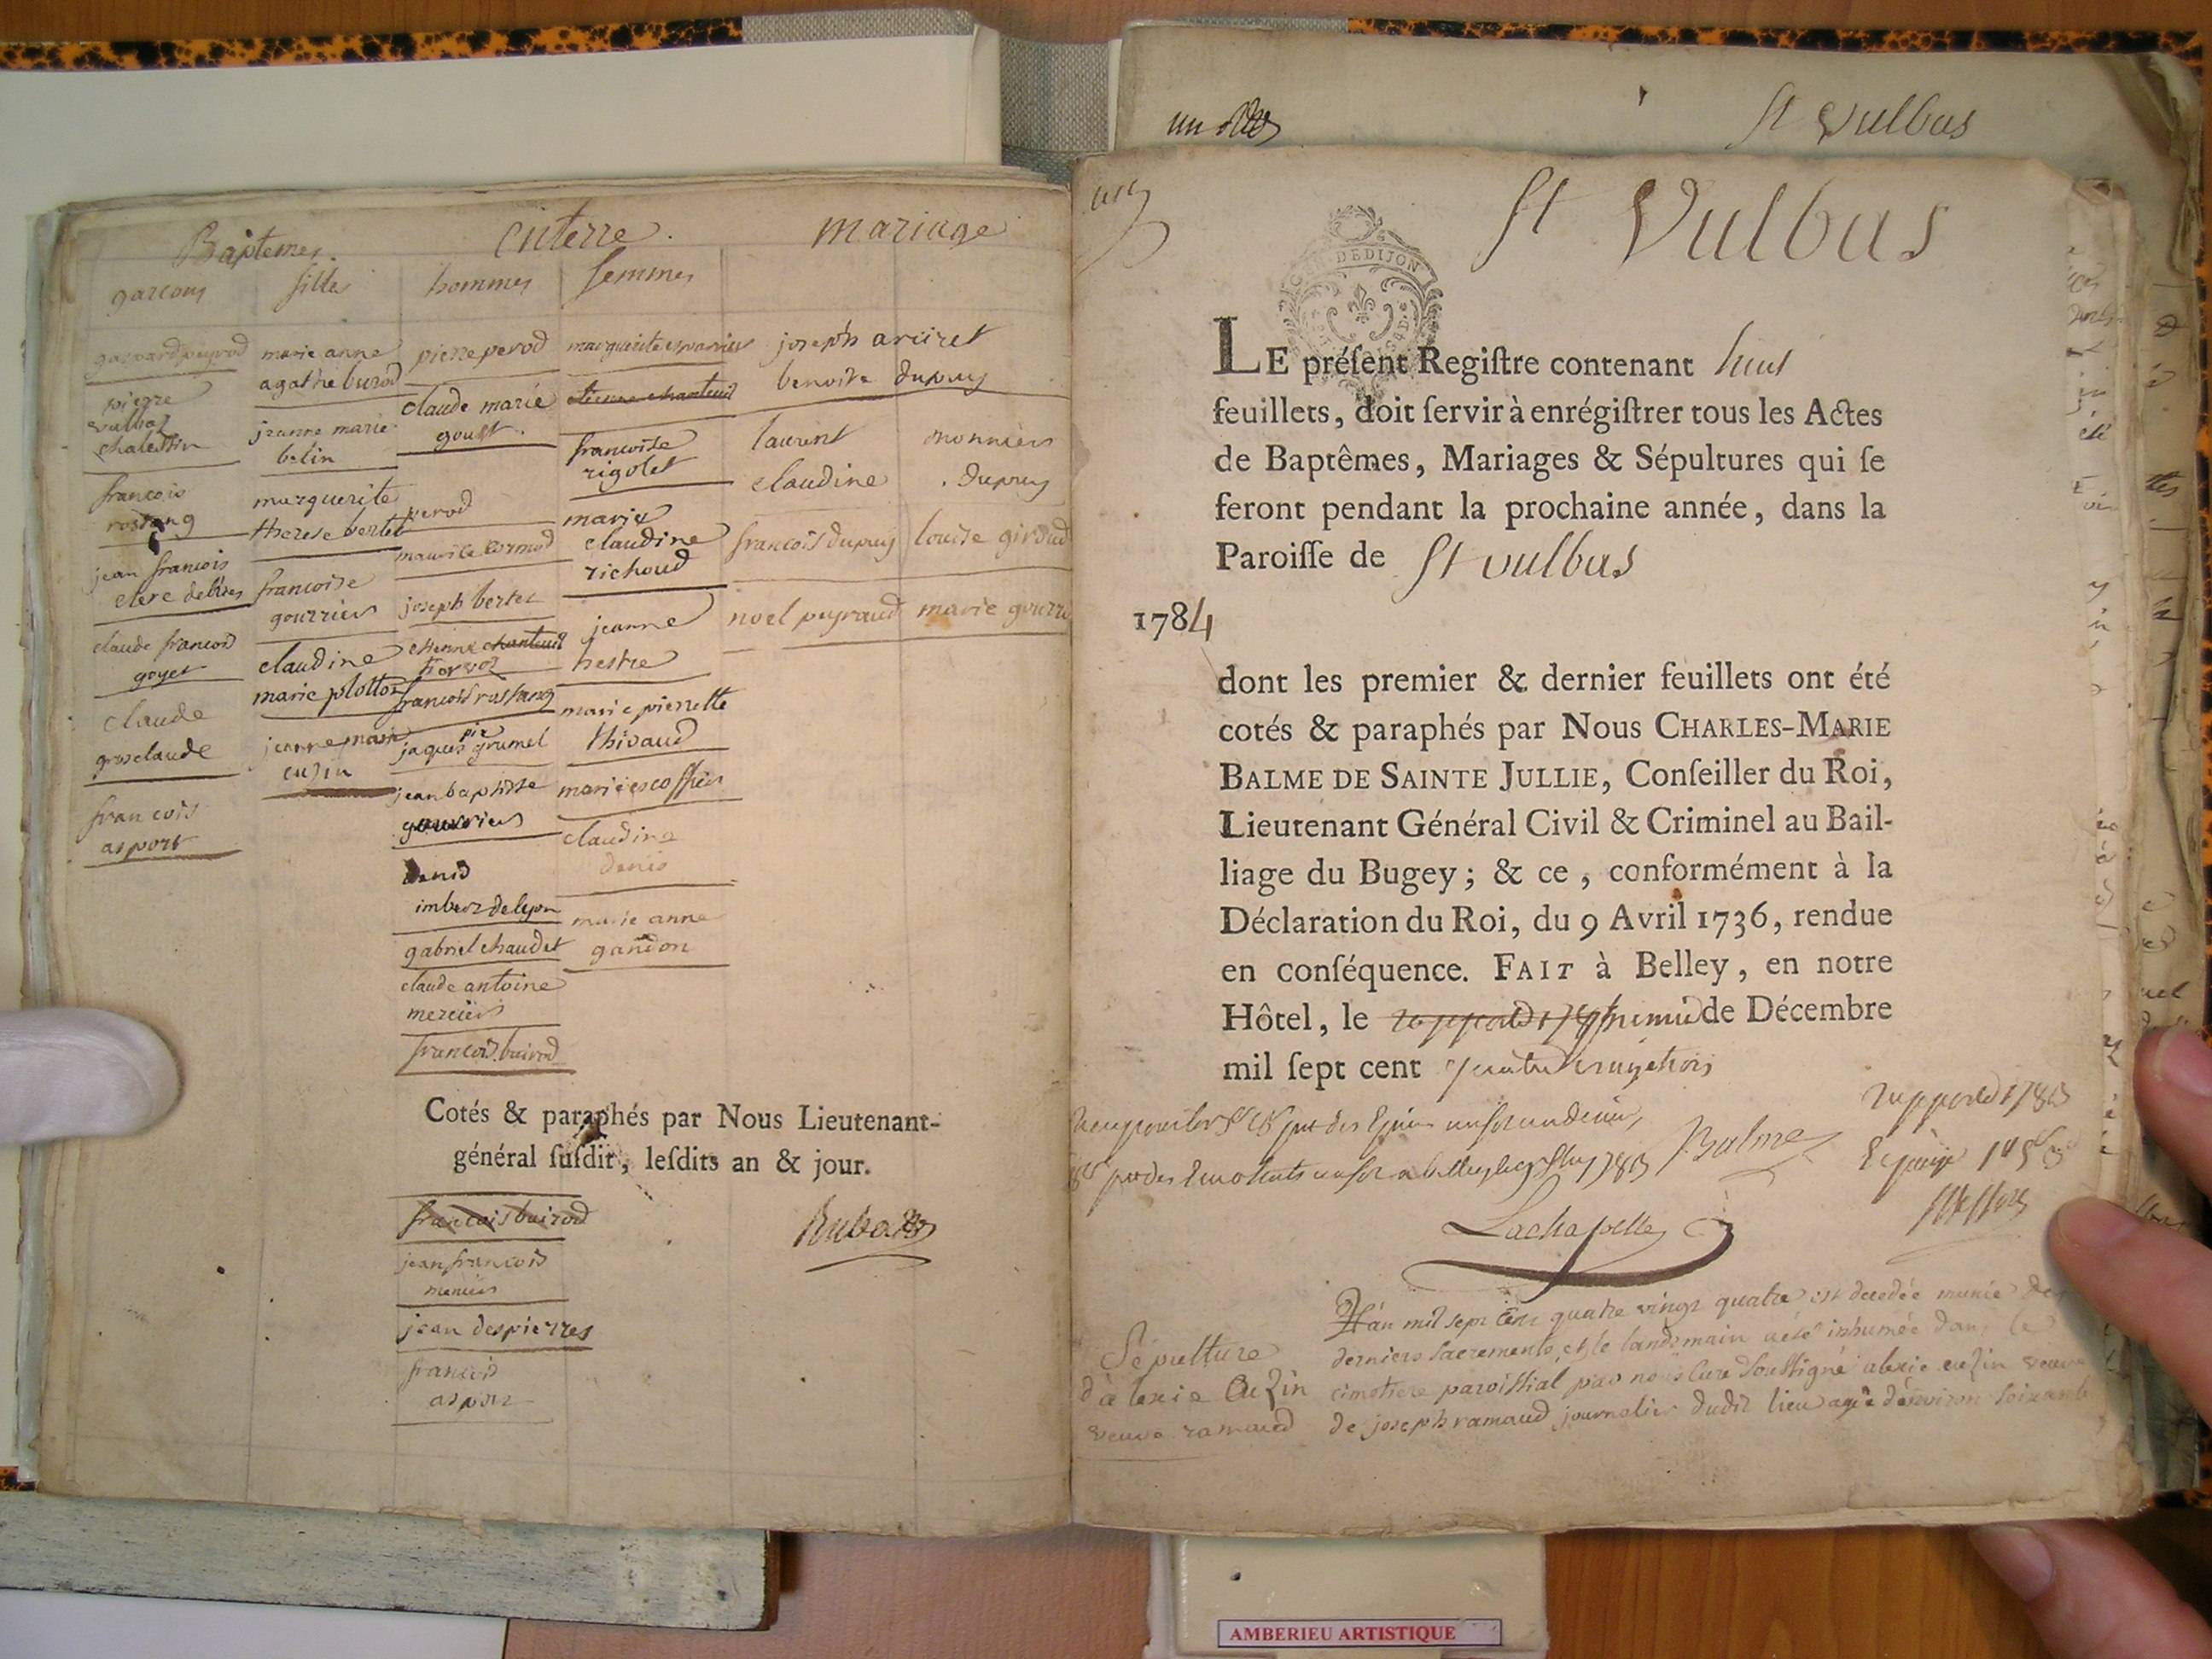 Baptemes.
enterre.
mariage
garcons
filles
hommes
femmes
gaspard peyrod
pierre
vulbas
chalestin
francois
rostang
jean francois
clerc
claude francois
goyet
claude
grosclaude
francois
asport
marie anne
agathe burod
jeanne marie
belin
marguerite
therese bertet
francoise
gourrier
claudine
marie plotton
jeanne marie
cuzin
pierre perod
claude marie
goust.
perod
maurice cormod
joseph bertet
etienne chanteur
francois rostang
jaques grumel
jean baptiste
gourrier
denis
imbert de lyon
gabriel chaudet
claude antoine
mercier
francois buirod
marguerite
etienne chanteur
francoise
rigolet
marie
claudine
richoud
jeanne
hestre
marie pierrette
thivaud
marie escoffier
claudine
denis
marie anne
gandon
joseph
benoite dupuy
laurent monnier
claudine . dupuy
francois dupuy louise giroud
noel peyraud marie
Cotés & paraphés par Nous Lieutenant-
général ſuſdit, leſdits an & jour.
francois buirod
jean francois
mercier
jean despierres
francois
aspor
St Vulbas
St Vulbas
GEN. DE DIJON
LE préſent Regiſtre contenant huit
feuillets, doit ſervir à enrégiſtrer tous les Actes
de Baptêmes, Mariages & Sépultures qui ſe
feront pendant la prochaine année, dans la
Paroiſſe de St vulbas
1784
dont les premier & dernier feuillets ont été
cotés & paraphés par Nous CHARLES-MARIE
BALME DE SAINTE JULLIE, Conſeiller du Roi,
Lieutenant Général Civil & Criminel au Bail-
liage du Bugey ; & ce, conformément à la
Déclaration du Roi, du 9 Avril 1736, rendue
en conſéquence. FAIT à Belley, en notre
Hôtel, le de Décembre
mil ſept cent quatre vingt trois
Balme
Lachapelle
Sépulture
d'alexie Cuzin
veuve ramaud
L'an mil sept cent quatre vingt quatre est decedée munie des
derniers sacrements, et le landemain a été inhumée dans le
cimetiere paroissial par nous Curé soussigné alexie cuzin veuve
de joseph ramaud journalier dudit lieu agée d'environ soixante
AMBERIEU ARTISTIQUE